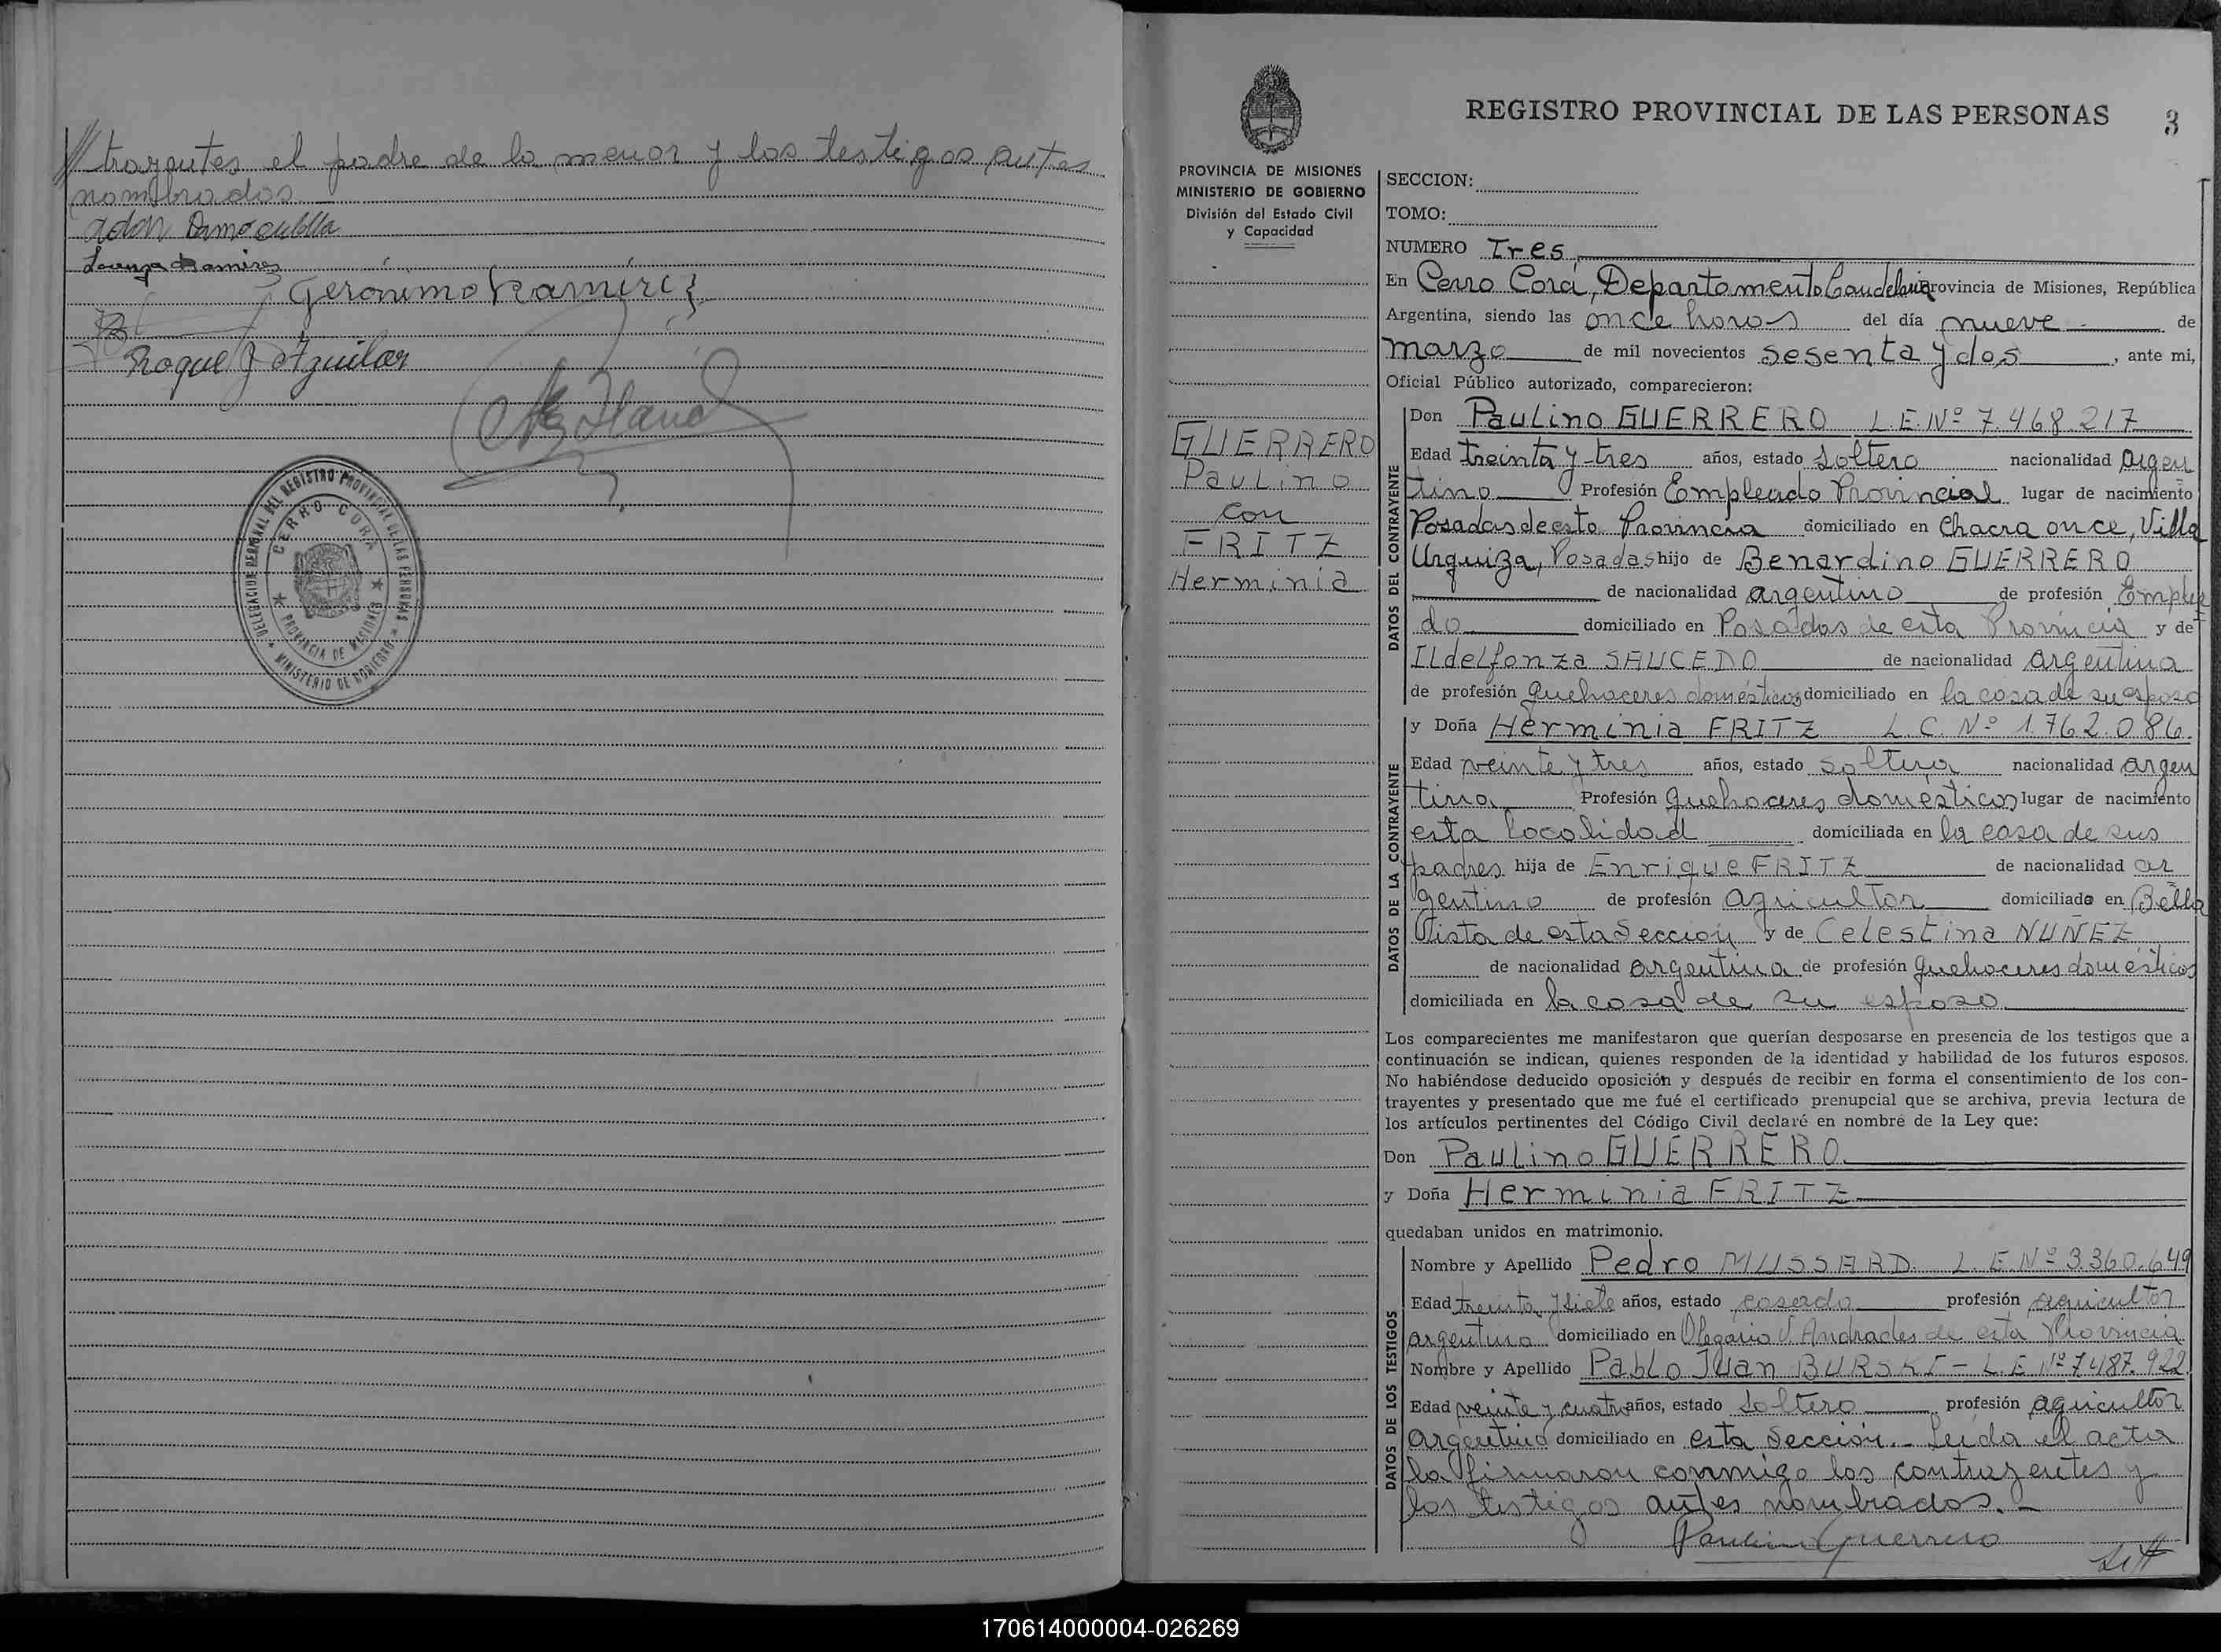 trayentes el padre de la menor y los testigos antes
nombrados
Lorenza Ramirez
Gerónimo Ramírez
Roque J Aguilar
DELEGACION SECCIONAL DEL REGISTRO PROVINCIAL DE LAS PERSONAS
CERRO CORA
PROVINCIA DE MISIONES
MINISTERIO DE GOBIERNO
REGISTRO PROVINCIAL DE LAS PERSONAS
3
PROVINCIA DE MISIONES
MINISTERIO DE GOBIERNO
División del Estado Civil
y Capacidad
GUERRERO
Paulino
con
FRITZ
Herminia
SECCION:
TOMO:
NUMERO Tres
En Cerro Corá, Departamento Candelaria Provincia de Misiones, República
Argentina, siendo las once horas del día nueve de
marzo de mil novecientos sesenta y dos, ante mi,
Oficial Público autorizado, comparecieron:
DATOS DEL CONTRAYENTE
Don Paulino GUERRERO L.E. Nº 7.468.217
Edad treinta y tres años, estado soltero nacionalidad argen
tino Profesión Empleado Provincial lugar de nacimiento
Posadas de esta Provincia domiciliado en Chacra once, Villa
Urquiza, Posadas hijo de Benardino GUERRERO
de nacionalidad argentino de profesión Emplea
do domiciliado en Posadas de esta Provincia y de
ILdelfonza SAUCEDO de nacionalidad argentina
de profesión quehaceres domésticos domiciliado en la casa de su esposo
DATOS DE LA CONTRAYENTE
y Doña Herminia FRITZ L.C. Nº 1.762.086.
Edad veinte y tres años, estado soltera nacionalidad argen
tina Profesión quehaceres domésticos lugar de nacimiento
esta localidad domiciliada en la casa de sus
padres hija de Enrique FRITZ de nacionalidad ar
gentino de profesión agricultor domiciliado en Bella
Vista de esta Sección y de Celestina NUÑEZ
de nacionalidad argentina de profesión quehaceres domésticos
domiciliada en la casa de su esposo
Los comparecientes me manifestaron que querían desposarse en presencia de los testigos que a
continuación se indican, quienes responden de la identidad y habilidad de los futuros esposos.
No habiéndose deducido oposición y después de recibir en forma el consentimiento de los con-
trayentes y presentado que me fué el certificado prenupcial que se archiva, previa lectura de
los artículos pertinentes del Código Civil declaré en nombre de la Ley que:
Don Paulino GUERRERO.
y Doña Herminia FRITZ
quedaban unidos en matrimonio.
DATOS DE LOS TESTIGOS
Nombre y Apellido Pedro MUSSARD. L.E. Nº 3.360.649
Edad treinta y siete años, estado casado profesión agricultor
argentino domiciliado en Olegario V. Andrades de esta Provincia
Nombre y Apellido Pablo Juan BURSKI - L.E. Nº 7.487.922.
Edad veinte y cuatro años, estado soltero profesión agricultor
argentino domiciliado en esta Sección.- Leida el acta
la firmaron conmigo los contrayentes y
los testigos antes nombrados.-
Paulino Guerrero
170614000004-026269